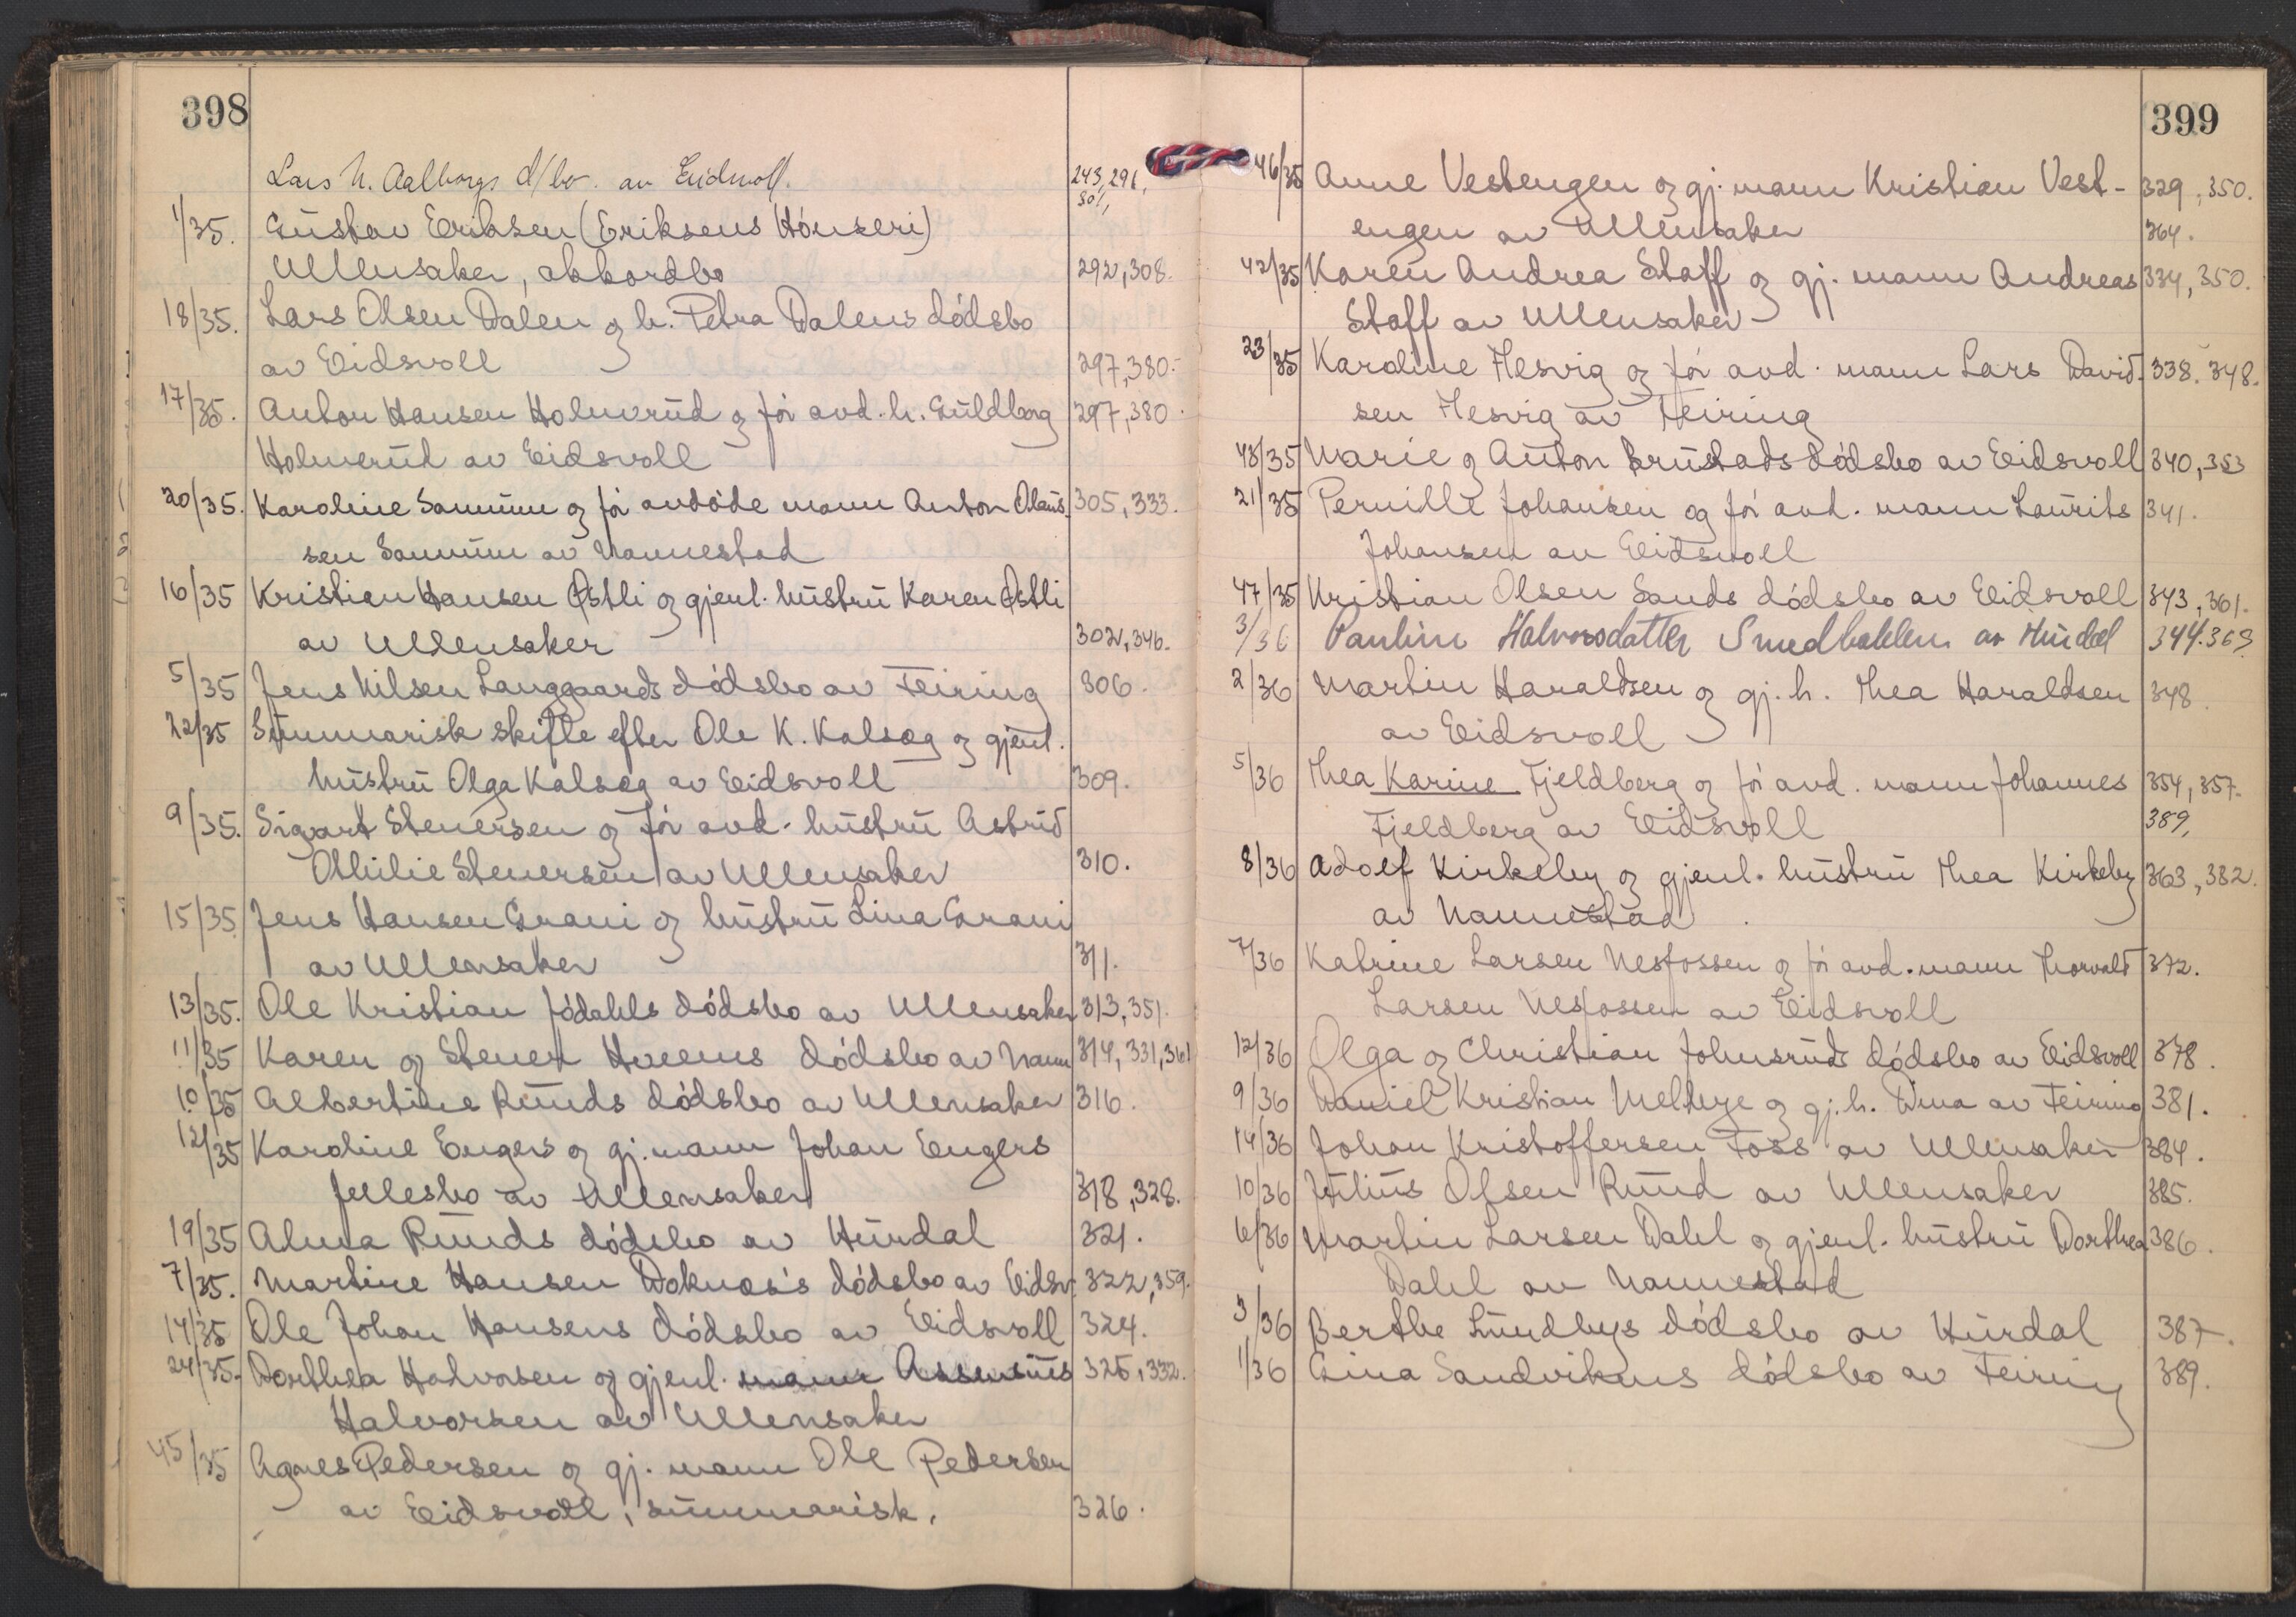 398
Lars N. Aalborgs d/bo. av Eidsvoll. 243, 291,
301,
1/35. Gustav Eriksen (Eriksens Hönseri)
Ullensaker, akkordbo 292, 308.
18/35. Lars Olsen Dalen og h. Petra Dalens dódsbo
av Eidsvoll 297, 380.
17/35. Anton Hansen Holmerud og fór avd. h. Guldborg 297, 380.
Holmerud av Eidsvoll
20/35. Karoline Sannum og fór avdóde mann Anton Olaus- 305, 333.
sen Sannum av Nannestad
16/35 Kristian Hansen Østli og gjenl. hustru Karen Østli
av Ullensaker 302, 346.
5/35 Jens Nilsen Langgaards dódsbo av Feiring 306.
22/35 Summarisk skifte efter Ole K. Kalsæg og gjenl.
hustru Olga Kalsæg av Eidsvoll 309.
9/35. Sigvart Stenersen og fór avd. hustru Astrid
Othilie Stenersen av Ullensaker 310.
15/35 Jens Hansen Grani og hustru Lina Grani
av Ullensaker 311.
13/35. Ole Kristian Jódahls dódsbo av Ullensaker 313, 351.
11/35 Karen og Stener Hveems dódsbo av Nann 314, 331, 361
10/35 Albertine Ruuds dódsbo av Ullensaker 316.
12/35 Karoline Engers og gj. mann Johan Engers
fellesbo av Ullensaker 318, 328.
19/35 Alma Ruuds dódsbo av Hurdal 321.
7/35. Martine Hansen Doknæs's dódsbo av Eidsv. 322, 359.
14/35 Ole Johan Hansens dódsbo av Eidsvoll 324.
24/35. Dorthea Halvorsen og gjenl. mann Assensius 325, 332.
Halvorsen av Ullensaker
45/35 Agnes Pedersen og gj. mann Ole Pedersen
av Eidsvoll, summarisk. 326.
399
46/35 Anne Vestengen og gj. mann Kristian Vest- 329, 350.
engen av Ullensaker 364.
42/35 Karen Andrea Staff og gj. mann Andreas 334, 350.
Staff av Ullensaker
23/35 Karoline Hesvig og fór avd. mann Lars David- 338. 348.
sen Hesvig av Feiring
48/35 Marie og Anton Brustads dódsbo av Eidsvoll 340, 353
21/35 Pernille Johansen og fór avd. mann Laurits 341.
Johansen av Eidsvoll
47/35 Kristian Olsen Sands dódsbo av Eidsvoll 343, 361.
3/36 Pauline Halvorsdatter Smedbakken av Hurdal 344. 363
2/36 Martin Haraldsen og gj. h. Thea Haraldsen 348.
av Eidsvoll
5/36 Thea Karine Fjeldberg og fór avd. mann Johannes 354, 357.
Fjeldberg av Eidsvoll 389,
8/36 Adolf Kirkeby og gjenl. hustru Thea Kirkeby 363, 382.
av Nannestad
7/36 Katrine Larsen Nesfossen og fór avd. mann Thorvald 372.
Larsen Nesfossen av Eidsvoll
12/36 Olga og Christian Johnsruds dódsbo av Eidsvoll 378.
9/36 Daniel Kristian Melbye og gj. h. Dina av Feiring 381.
14/36 Johan Kristoffersen Foss av Ullensaker 384.
10/36 Julius Olsen Ruud av Ullensaker 385.
6/36 Martin Larsen Dahl og gjenl. hustru Dorthea 386.
Dahl av Nannestad
3/36 Berthe Lundbys dódsbo av Hurdal 387.
1/36 Gina Sandvikens dódsbo av Feiring 389.